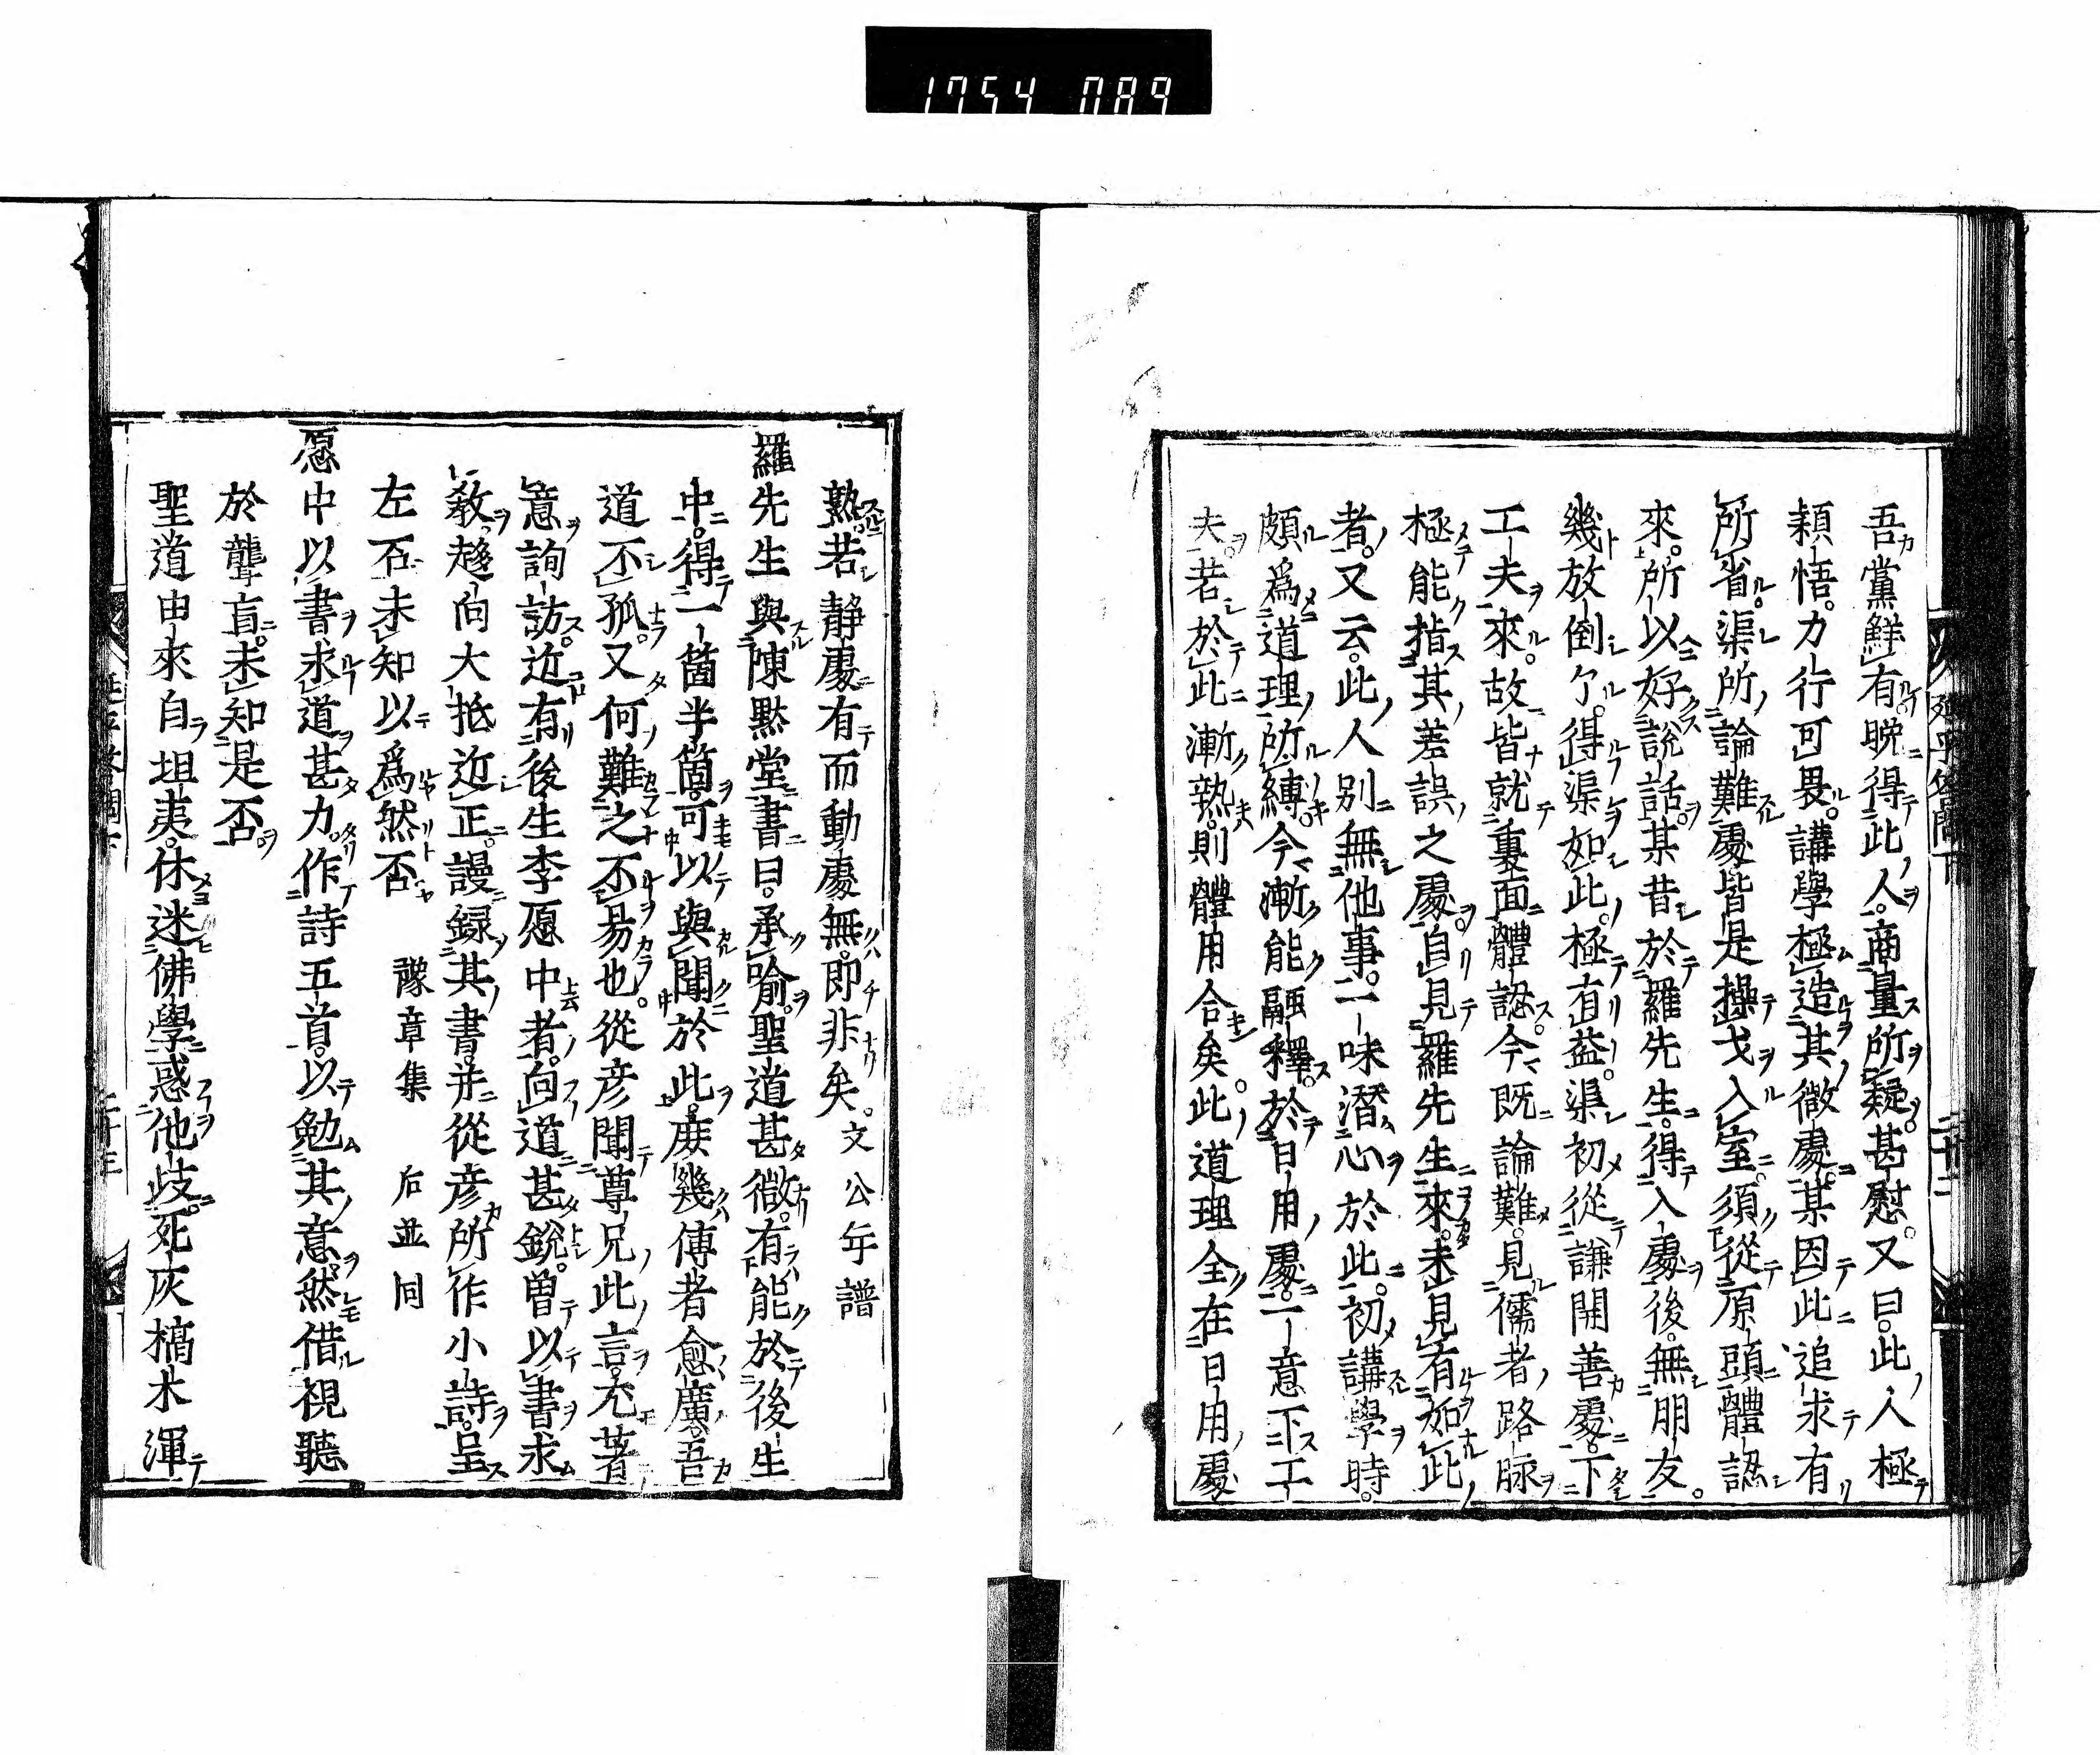 1754 089
吾黨鮮有晩得此人商量所疑甚慰。又曰。此人極
穎悟。力行可畏。講學極造其微處。某因此追求有
所省。渠所論難處皆是操戈入室。須從原頭體認
來。所以好説話。某昔於羅先生。得入處後。無朋友。
幾放倒了。得渠如此。極有益。渠初從謙開善處。下
工夫來。故皆就裏面體認。今既論難。見儒者路脉
極能指其差誤之處。自見羅先生來。未見有如此
者。又云。此人別無他事。一味潜心於此。初講學時。
頗爲道理所縛。今漸能融釋。於日用處。一意下工
夫。若於此漸熟。則體用合矣。此道理全在日用處
延平答問下
二十二
熟。若静處有而動處無。即非矣。文公年譜
羅先生與陳黙堂書曰。承喩。聖道甚微。有能於後生
中。得一箇半箇。可以與聞於此。庶幾傳者愈廣。吾
道不孤。又何難之不易也。從彦聞尊兄此言。尤著
意詢訪。近有後生李愿中者。向道甚鋭。曽以書求
教。趍向大抵近正。謾録其書。并從彦所作小詩。呈
左右。未知以爲然否　豫章集　右並同
愿中以書求道甚力。作詩五首。以勉其意。然借視聽
於聾盲。未知是否
聖道由來自坦夷。休迷佛學惑他歧。死灰槁木渾
延平答問下
二十三